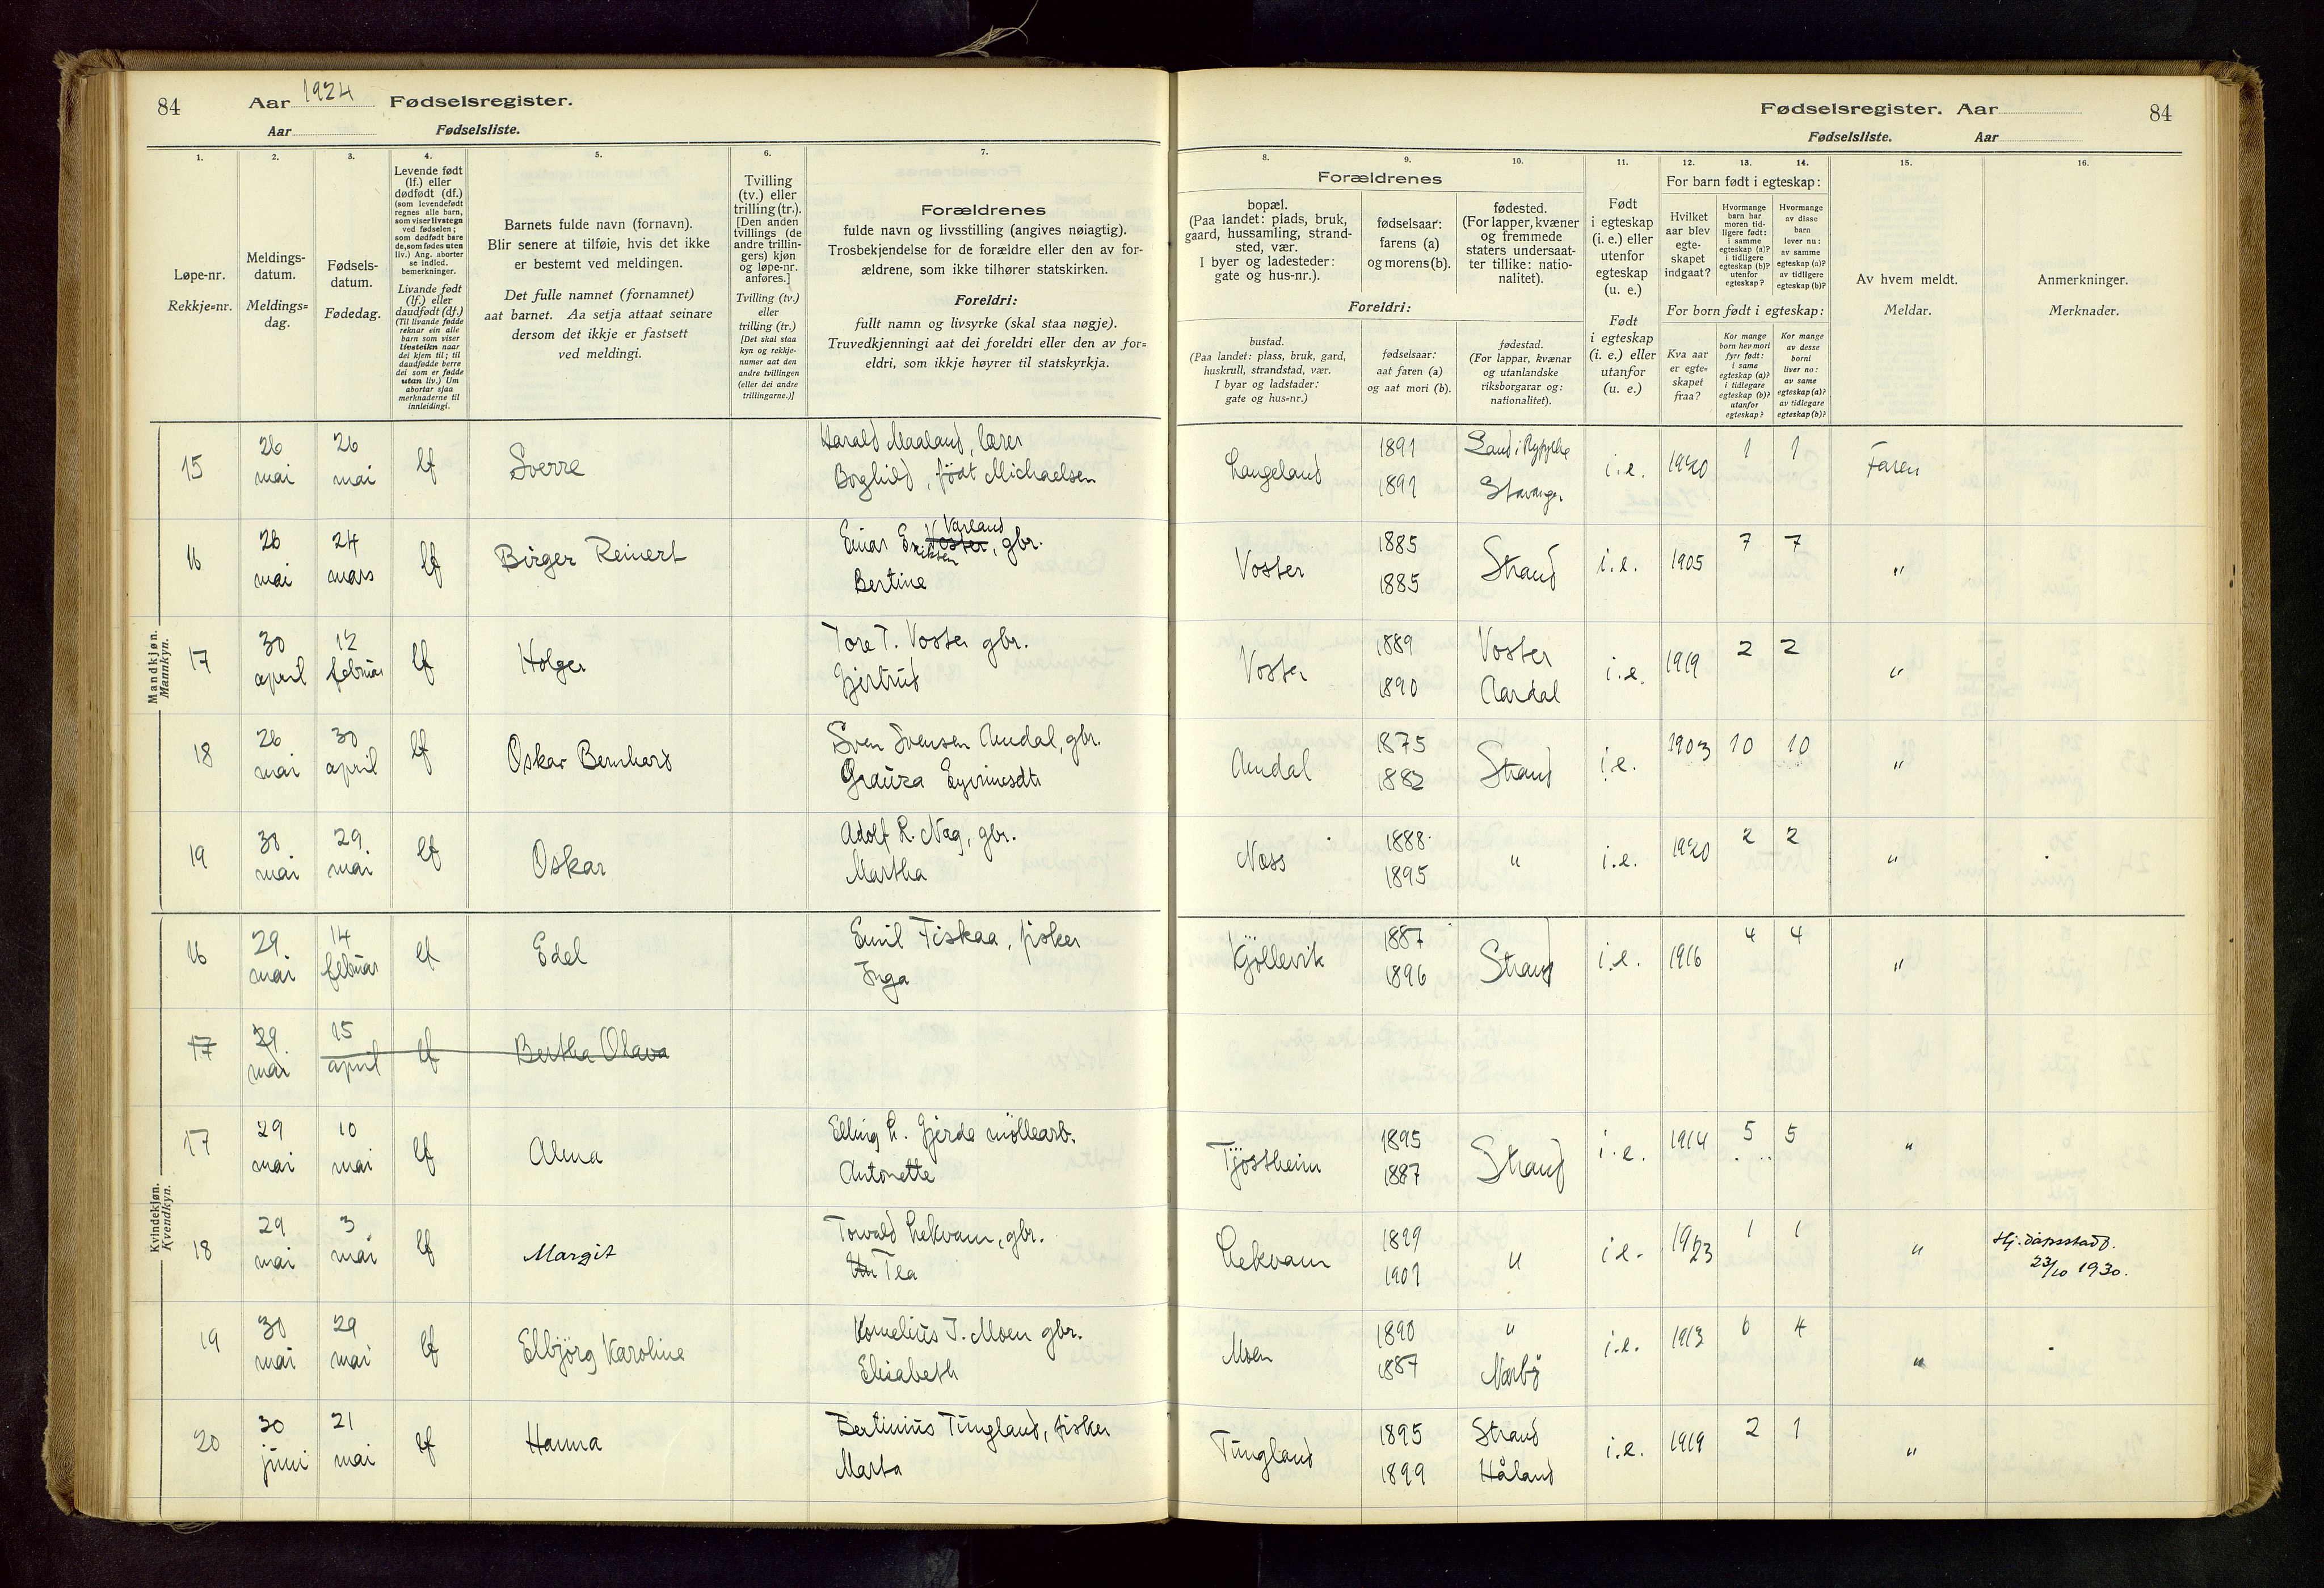 84 Aar 1924 Fødselsregister.
Aar Fødselsliste.
Fødselsregister. Aar 84
Fødselsliste. Aar
1. 2. 3. 4. 5. 6. 7. 8. 9. 10. 11. 12. 13. 14. 15. 16.
Løpe-nr.
Rekkje=nr.
Meldings-
datum.
Meldings=
dag.
Fødsels-
datum.
Fødedag.
Levende født
(lf.) eller
dødfødt (df.)
(som levendefødt
regnes alle barn,
som viser livstegn
ved fødselen;
som dødfødt bare
de, som fødes uten
liv.) Ang. aborter
se indled.
bemerkninger.
Livande født
(lf.) eller
daudfødt (df.)
(Til livande fødde
reknar ein alle
barn som viser
livsteikn naar
dei kjem til; til
daudfødde berre
dei som er fødde
utan liv.) Um
abortar sjaa
merknaderne til
innleidingi.
Barnets fulde navn (fornavn).
Blir senere at tilføie, hvis det ikke
er bestemt ved meldingen.
Det fulle namnet (fornamnet)
aat barnet. Aa setja attaat seinare
dersom det ikkje er fastsett
ved meldingi.
Tvilling
(tv.) eller
trilling (tr.).
[Den anden
tvillings (de
andre trillin-
gers) kjøn
og løpe-nr.
anføres.]
Tvilling (tv.)
eller
trilling (tr.)
[Det skal staa
kyn og rekkje-
numer aat den
andre tvillingen
(eller dei andre
trillingarne.)]
Forældrenes
fulde navn og livsstilling (angives nøiagtig).
Trosbekjendelse for de forældre eller den av for-
ældrene, som ikke tilhører statskirken.
Foreldri:
fullt namn og livsyrke (skal staa nøgje).
Truvedkjenningi aat dei foreldri eller den av for=
eldri, som ikkje høyrer til statskyrkja.
Forældrenes
bopæl.
(Paa landet: plads, bruk,
gaard, hussamling, strand-
sted, vær.
I byer og ladesteder:
gate og hus-nr.).
fødselsaar:
farens (a)
og morens (b).
fødested.
(For lapper, kvæner
og fremmede
staters undersaat-
ter tillike: natio-
nalitet).
Foreldri:
bustad.
(Paa landet: plass, bruk, gard,
huskrull, strandstad, vær.
I byar og ladstader:
gate og hus=nr.)
fødselsaar:
aat faren (a)
og aat mori (b).
fødestad.
(For lappar, kvænar
og utanlandske
riksborgarar og:
nationalitet).
Født
i egteskap
(i. e.) eller
utenfor
egteskap
(u. e.)
Født
i egteskap
(i. e.) eller
utanfor
(u. e.)
For barn født i egteskap:
Hvilket
aar blev
egte-
skapet
indgaat?
Hvormange
barn har
moren tid-
ligere født:
i samme
egteskap (a)?
i tidligere
egteskap (b)?
utenfor
egteskap?
Hvormange
av disse
barn
lever nu:
av samme
egteskap (a)?
av tidligere
egteskap (b)?
For born født i egteskap:
Kva aar
er egte=
skapet
fraa?
Kor mange
born hev mori
fyrr født:
i same
egteskap (a)?
i tidlegare
egteskap (b)?
utanfor
egteskap?
Kor mange
av desse
borni
liver no:
av same
egteskap (a)?
av tidlegare
egteskap (b)?
Av hvem meldt.
Meldar.
Anmerkninger.
Merknader.
Mandkjøn.
Mannkyn.
15 26 mai 26 mai lf Sverre Harald Maaland, lærer Langeland 1891 Sand i Ryfylke i.e. 1920 1 1 Faren
Borghild, født Michaelsen 1891 Stavanger
16 26 mai 24 mars lf Birger Reinert Einar Eriksen Voster Varland, gbr. Voster 1885 Strand i.e. 1905 7 7 "
Bertine 1885
17 30 april 12 februar lf Holger Tore T. Voster gbr. Voster 1889 Voster i.e. 1919 2 2 "
Gjertrud 1890 Aardal
18 26 mai 30 april lf Oskar Bernhard Sven Svensen Amdal, gbr. Amdal 1875 Strand i.e. 1903 10 10 "
1882
19 30 mai 29 mai lf Oskar Adolf L. Næg, gbr. Næss 1888 " i.e. 1920 2 2 "
Martha 1895
Kvindekjøn.
Kvendkyn.
16 29 mai 14 februar lf Edel Emil Fiskaa, fisker Kjöllevik 1887 Strand i.e. 1916 4 4 "
Inga 1896
17 29 mai 15 april lf Bertha Olava
17 29 mai 10 mai lf Alma Elling L. Gjerde møllearb. Tjøstheim 1895 Strand i.e. 1914 5 5 "
Antonette 1887
18 29 mai 3 mai lf Margit Torvald Lekvam, gbr. Lekvam 1899 " i.e. 1923 1 1 " Hj. dåpsstadf.
Tea 1901 23/10 1930.
19 30 mai 29 mai lf Elbjörg Karoline Kornelius T. Moen gbr. Moen 1890 " i.e. 1913 6 4 "
Elisabeth 1887 Nærbö
20 30 juni 21 mai lf Hanna Bertinius Tungland, fisker Tungland 1895 Strand i.e. 1919 2 1 "
Marta 1899 Håland